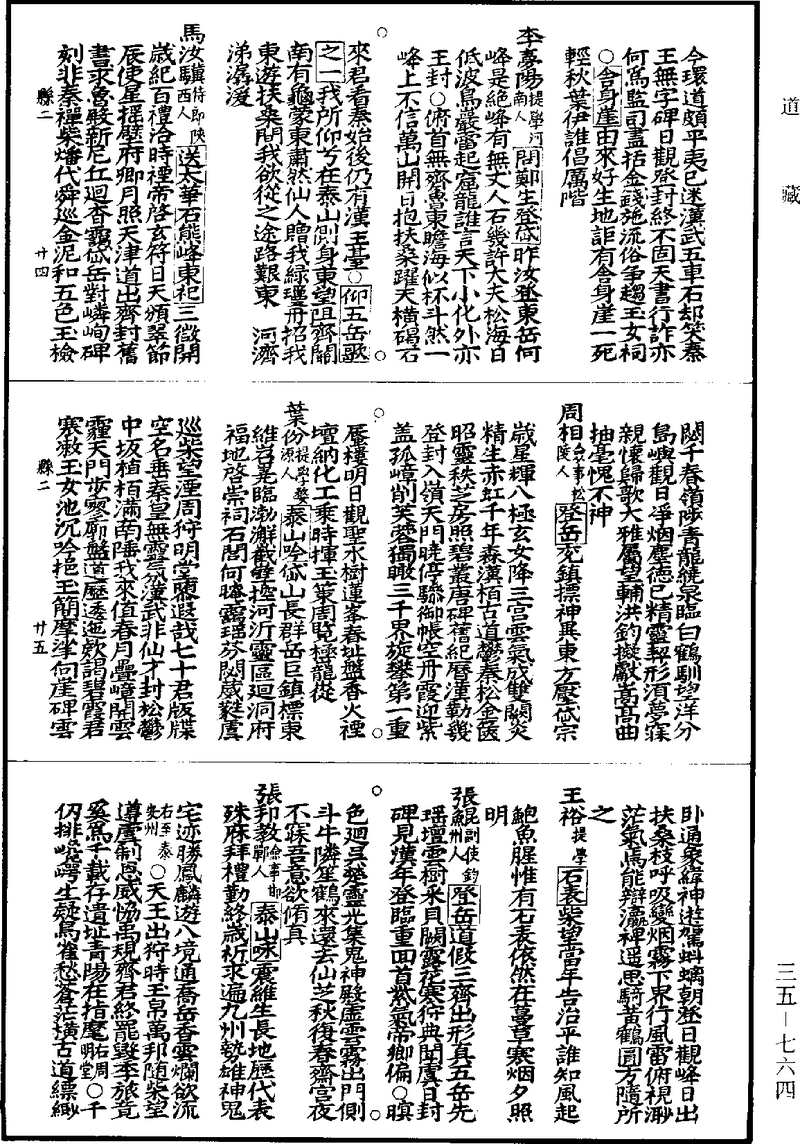 道藏
今環道頗平夷已迷漢武五車石却笑秦
王無字碑日觀登封終不固天書行詐亦
何爲監司盡括金錢施流俗爭趨玉女祠
○舍身崖由來好生地詎有舍身崖一死
輕秋葉伊誰倡厲階
李夢陽提學河南人 問鄭生登岱昨汝登東岳何
峰是絕峰有無丈人石幾許大夫松海日
低波鳥巖雷起窟龍誰言天下小化外亦
王封○俯首無齊魯東瞻海似杯斗然一
峰上不信萬山開日抱扶桑躍天橫碣石
來君看秦始後仍有漢王臺○仰五岳歌
之一我所仰兮在泰山側身東望阻齊關
南有龜蒙東肅然仙人贈我綠瓊舟招我
東遊扶桑間我欲從之途路艱東 河濟
涕潺湲
馬汝驥侍郎陝西人 送太華石熊峰東祀三微開
歲紀百禮洽時禋帝啓玄符日天頒翠節
辰使星摇壁府卿月照天津道出齊封舊
書求魯殿新尼丘迴杳靄岱岳對嶙峋碑
刻非秦禪柴燔代舜巡金泥和五色玉檢
縣二 廿四
閟千春嶺陟青龍繞泉臨白鶴馴望洋分
島嶼觀日凈烟塵德已精靈契形須夢寐
親懷歸歌大雅屬望輔洪鈞擬獻嵩高曲
抽毫愧不神
周相僉事松陵人 登岳死鎮摽神異東方壓岱宗
歲星輝八極玄女降三宮雲氣成雙闕炎
精生赤虹千年森漢栢古道鬱秦松金函
昭靈秩芝房照碧叢唐碑舊紀曆漢勒幾
登封入嶺天門曉停驂御帳空丹霞迎紫
蓋孤嶂削芙蓉獨瞰三千界旋攀第一重
蜃樓明日觀聖水樹蓮峯春址盤香火禋
壇納化工乘時揮玉策周覽極龍從
葉份提學婺源人 泰山吟岱山長群岳巨鎮標東
維岩嶤臨渤澥截嶭控河沂靈區迴洞府
福地啓崇祠石閭何曈靄瑶芬閟葳蕤虞
巡柴望湮周狩明堂隳遐哉七十君版牒
空名垂秦皇無靈氣漢武非仙才封松鬱
中坂植栢滿南陲我來值春月疊嶂開雲
霾天門步寥廓盤道歷逶迤欸謁碧霞君
寒漱玉女池沉吟挹玉簡摩挲向崖碑雲
縣二 廿五
卧通象緯神遊駕蚪螭朝登日觀峰日出
扶桑枝呼吸變烟霧下界行風雷俯視渺
茫氣焉能辯瀛裨遥思騎黃鶴圓方隨所
之
王裕提學 石表柴望當年告治平誰知風起
鮑魚腥惟有石表依然在蔓草寒烟夕照
明
張鯤副使鈞州人 登岳道假三齊出形真五岳先
瑶壇雲樹采貝闕露花寒狩典聞虞日封
碑見漢年登臨重回首紫氣帝鄉偏○暝
色廻吴楚靈光集鬼神殿虛雲霧出門側
斗牛隣笙鶴來還去仙芝秋復春齋宮夜
不寐吾意欲脩真
張邦教僉事鄆人 泰山咏雲維生長地歷代表
殊庥拜禮勤終歲祈求遍九州勢雄神鬼
宅迹勝鳳麟遊八境通喬岳香雲爛欲流
右至泰安州○天王出狩時玉帛萬邦隨柴望
遵虞制恩威恊禹規齊君終罷毀季旅竟
奚爲千載存遺址青陽在指麾右周明堂○千
仞排峣崿生疑鳥雀愁蒼茫横古道縹緲
三五－七六四